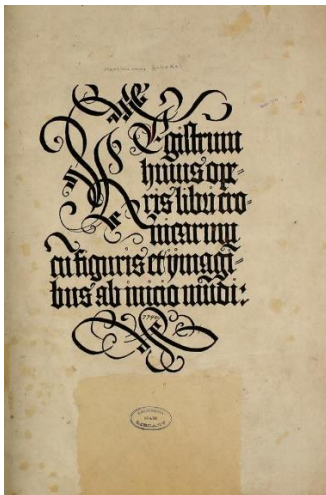 Registrum
huius ope-
ris libri cro-
nicarum
cū figuris et ymagi-
bus ab inicio mūdi:
LIBRARY